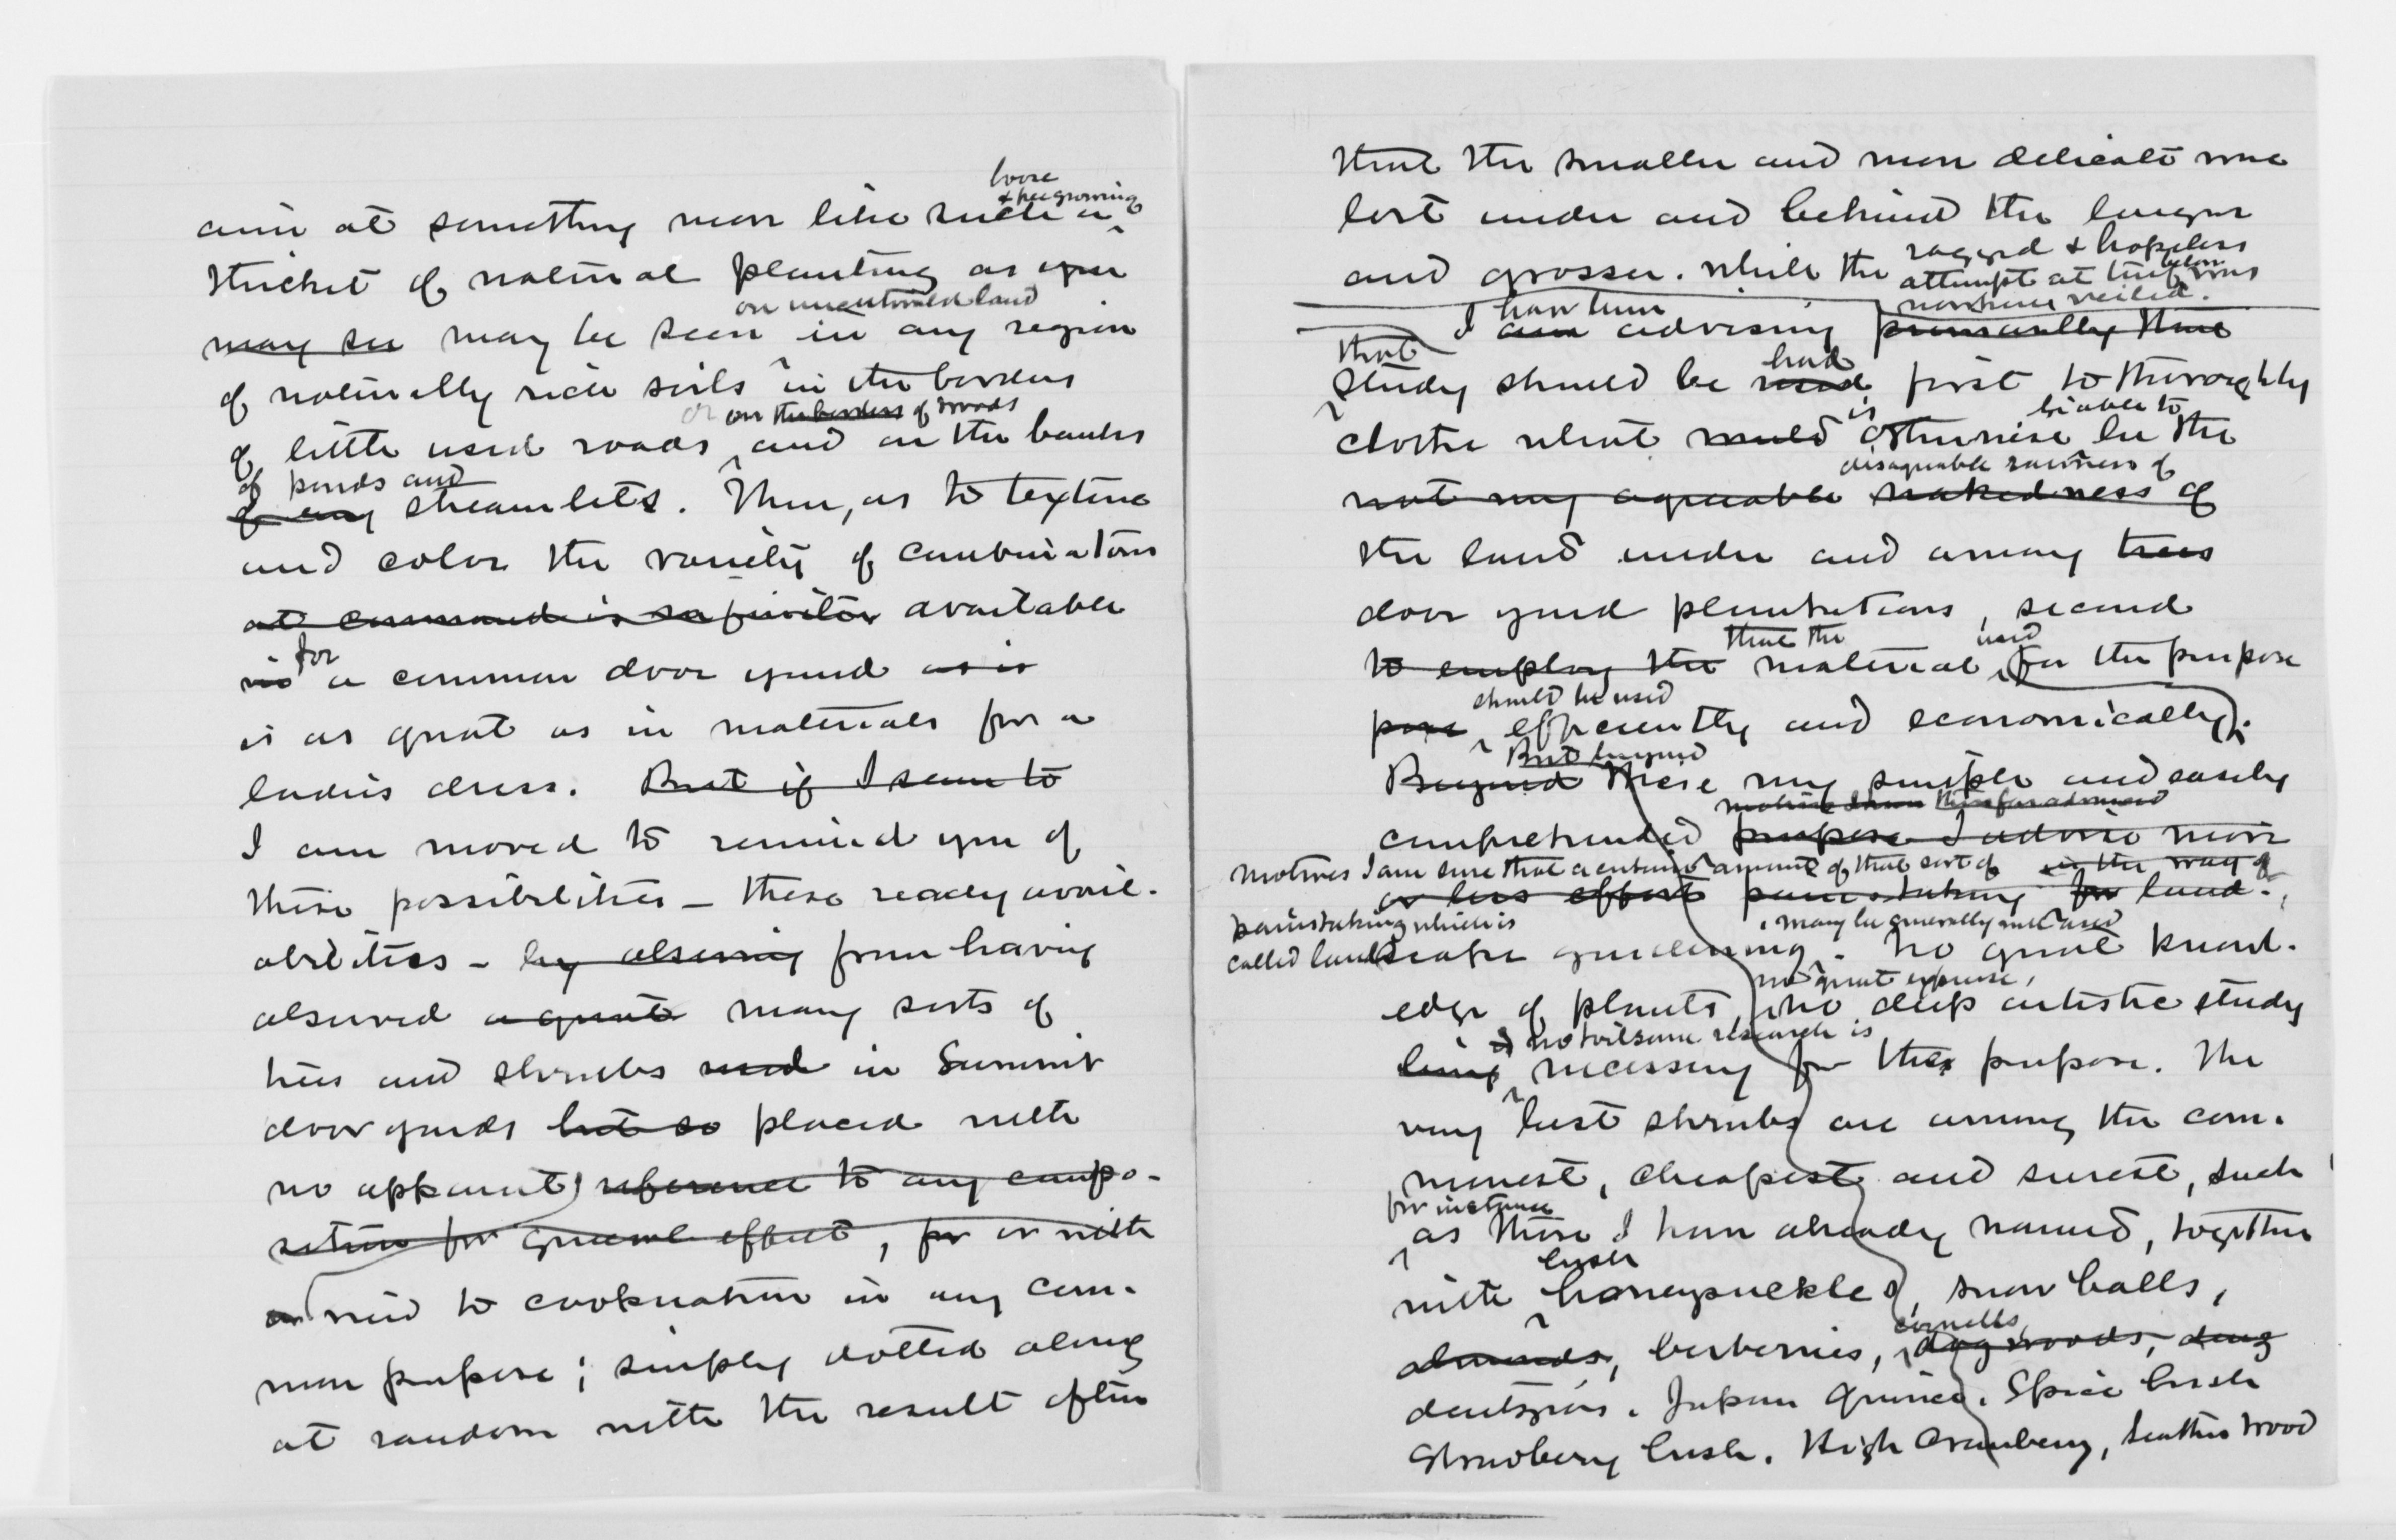 loose
& free growing
aim at something more like such a
thicket of natural planting as you
on uncultivated land
may see may be seen in any region
of naturally rich soils in the borders
or on the borders of woods
of little used roads and on the banks
of ponds and
of any streamlets. Then, as to texture
and color the variety of combinations
at command is so infinite available
for
in a common door yard as is
is as great as in materials for a
ladies dress. But if I seem to
I am moved to remind you of
these possibilities - these ready avail-
abilities - by observing from having
observed a great many sorts of
trees and shrubs used in Summit
door yards but so placed with
no apparent reference to any compo-
sition for general effect, for or with
an mind to cooperation in any com-
mon purpose; simply dotted along
at random with the result often
that the smaller and more delicate were
lost under and behind the larger
ragged & hopeless
and grosser. while the attempt at turf below was
nowhere veiled.
have been
I am advising primarily that
that
had
study should be used first to thoroughly
is liable to
clothe what would otherwise be the
disagreeable rawness of
not very agreeable nakedness of
the land under and among trees
door yard plantations, second
that the used
to employ the material for the purpose
should be used
efficiently and economically.
But beyond
Beyond these very simple and easily
motives thus far advanced
comprehended purpose I advise more
motives I am sure that a certain amount of that sort of in the way of
or less effort painstaking for land-
painstaking which is , may be generally well used
called landscape gardening. No great knowl-
no great expense,
edge of plants, no deep artistic study
no toilsome research is
being necessary for this purpose. The
very best shrubs are among the com-
monest, cheapest and surest, such
for instance
as those I have already named, together
bush
with honeysuckles, snow balls,
cornells,
almonds, berberries, dogwoods, deug
deutzias. Japan Quince. Spice bush
Strawberry bush. High Cranberry, Leather wood